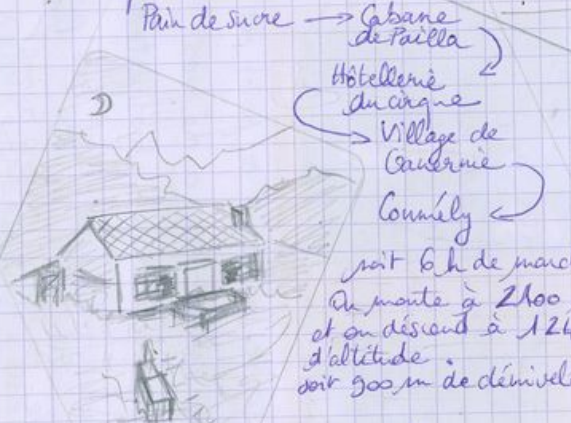 Pain de sucre → Cabane
de Pailla
Hôtellerie
du cirque
Village de
Gavernie
Coumély
soit 6 h de marc
On monte à 2100
et on déscend à 12
d'altitude.
soit 900 m de dénivel